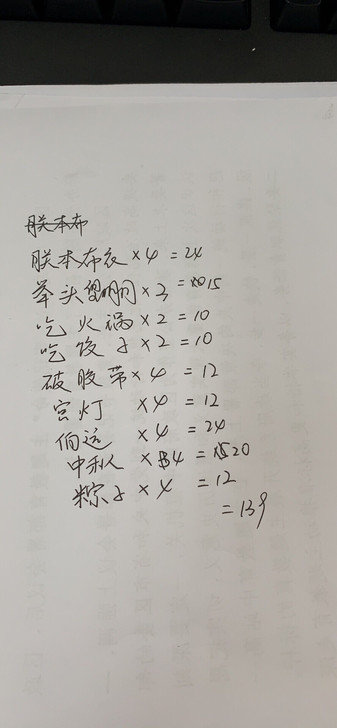 朕本布
朕本布衣×4=24
举头望明月×3=15
吃火锅×2=10
吃饺子×2=10
破胶带×4=12
宫灯×4=12
伯远×4=24
中秋×4=20
粽子×4=12
=139